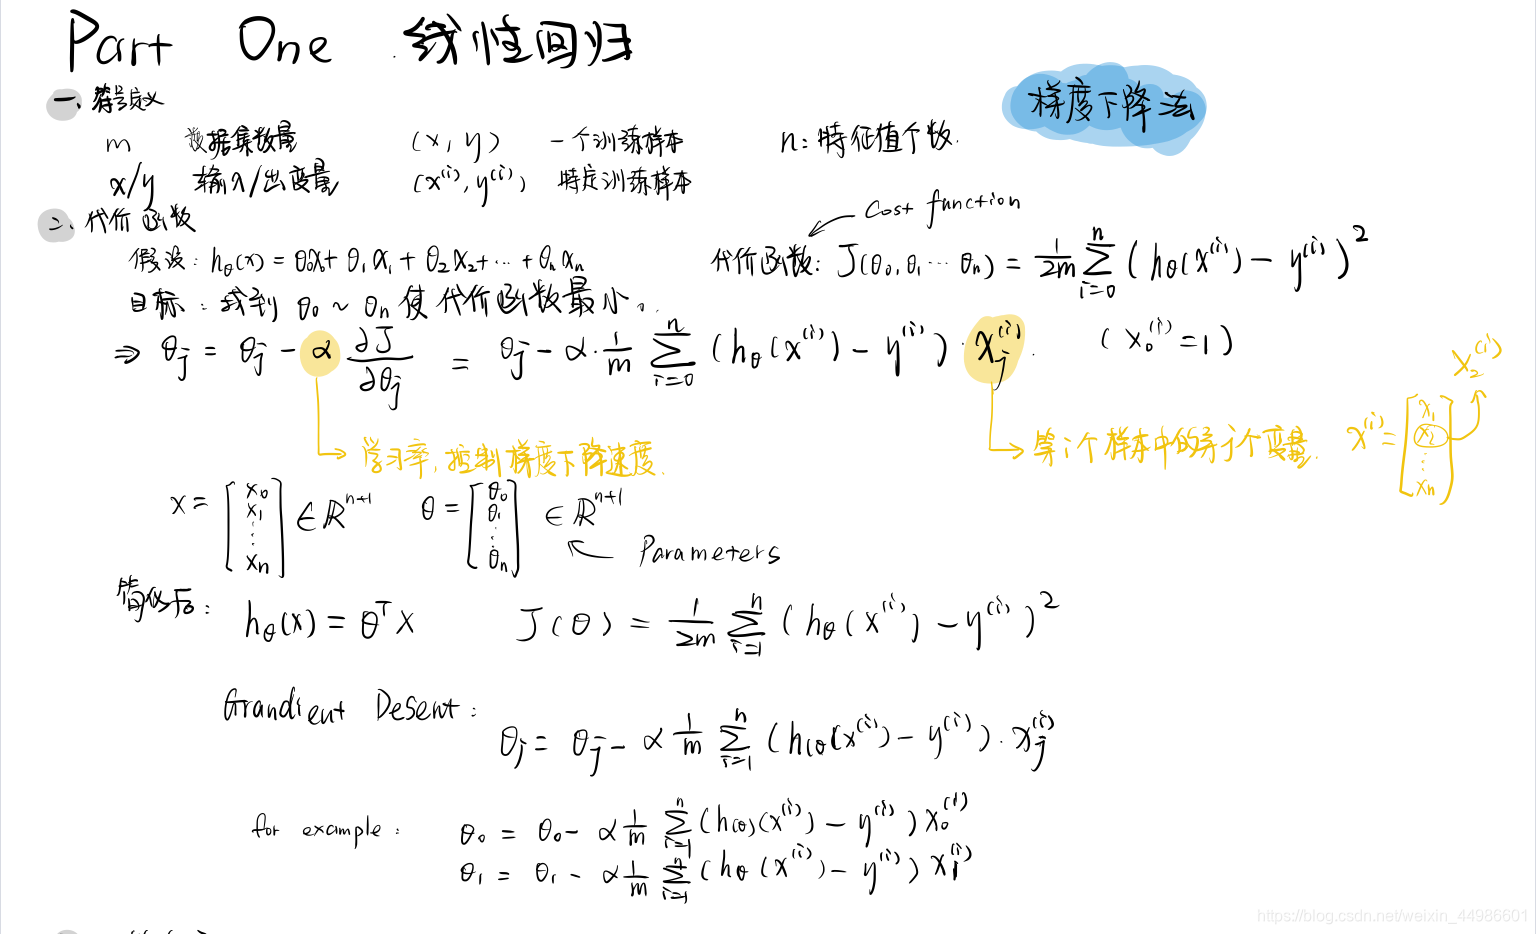 Part One 线性回归
梯度下降法
一、符号定义
m 数据集数量 (x, y) 一个训练样本 n: 特征值个数.
x/y 输入/出变量 (x⁽ⁱ⁾, y⁽ⁱ⁾) 特定训练样本
二、代价函数
Cost function
假设: hθ(x) = θ₀x₀ + θ₁x₁ + θ₂x₂ + ... + θₙxₙ 代价函数: J(θ₀, θ₁ ... θₙ) = 1/2m ∑ᵢ₌₀ⁿ (hθ(x⁽ⁱ⁾) − y⁽ⁱ⁾)²
目标: 找到 θ₀ ~ θₙ 使代价函数最小。
⇒ θⱼ = θⱼ − α ∂J/∂θⱼ = θⱼ − α · 1/m ∑ᵢ₌₀ⁿ (hθ(x⁽ⁱ⁾) − y⁽ⁱ⁾) · xⱼ⁽ⁱ⁾. (x₀⁽ⁱ⁾ = 1)
学习率, 控制梯度下降速度.
第i个样本中的第j个变量. x⁽ⁱ⁾ = [x₁ x₂ ⋮ xₙ] x₂⁽ⁱ⁾
x = [x₀ x₁ ⋮ xₙ] ∈ ℝⁿ⁺¹ θ = [θ₀ θ₁ ⋮ θₙ] ∈ ℝⁿ⁺¹
Parameters
简化后: hθ(x) = θᵀx J(θ) = 1/2m ∑ᵢ₌₁ⁿ (hθ(x⁽ⁱ⁾) − y⁽ⁱ⁾)²
Grandient Desent:
θⱼ = θⱼ − α 1/m ∑ᵢ₌₁ⁿ (h(θ(x⁽ⁱ⁾) − y⁽ⁱ⁾) · xⱼ⁽ⁱ⁾
for example: θ₀ = θ₀ − α 1/m ∑ᵢ₌₁ⁿ (h(θ)(x⁽ⁱ⁾) − y⁽ⁱ⁾) x₀⁽ⁱ⁾
θ₁ = θ₁ − α 1/m ∑ᵢ₌₁ⁿ (hθ(x⁽ⁱ⁾) − y⁽ⁱ⁾) x₁⁽ⁱ⁾
https://blog.csdn.net/weixin_44986601